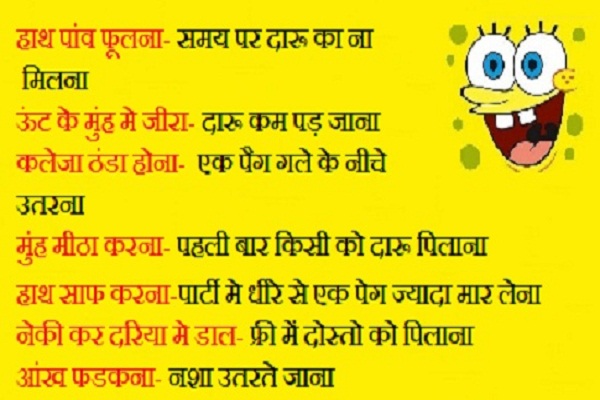 हाथ पांव फूलना- समय पर दारू का ना
मिलना
ऊंट के मुंह मे जीरा- दारू कम पड़ जाना
कलेजा ठंडा होना- एक पैग गले के नीचे
उतरना
मुंह मीठा करना- पहली बार किसी को दारू पिलाना
हाथ साफ करना-पार्टी मे धीरे से एक पेग ज्यादा मार लेना
नेकी कर दरिया मे डाल- फ्री में दोस्तो को पिलाना
आंख फडकना- नशा उतरते जाना